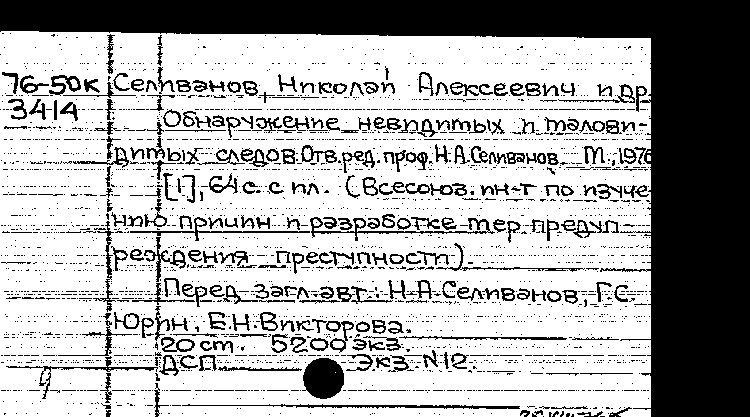 76-50к Селиванов, Николай Алексеевич и др.
3414
Обнаружение невидимых и малови-
димых следов. Отв. ред. проф. Н.А. Селиванов. М., 1976
[1], 64 с. с ил. (Всесоюз. ин-т по изуче-
нию причин и разработке мер предуп-
реждения преступности).
Перед загл. авт.: Н.А. Селиванов, Г.С.
Юрин, Е.Н. Викторова.
20 см. 5200 экз.
ДСП Экз. N12.
9